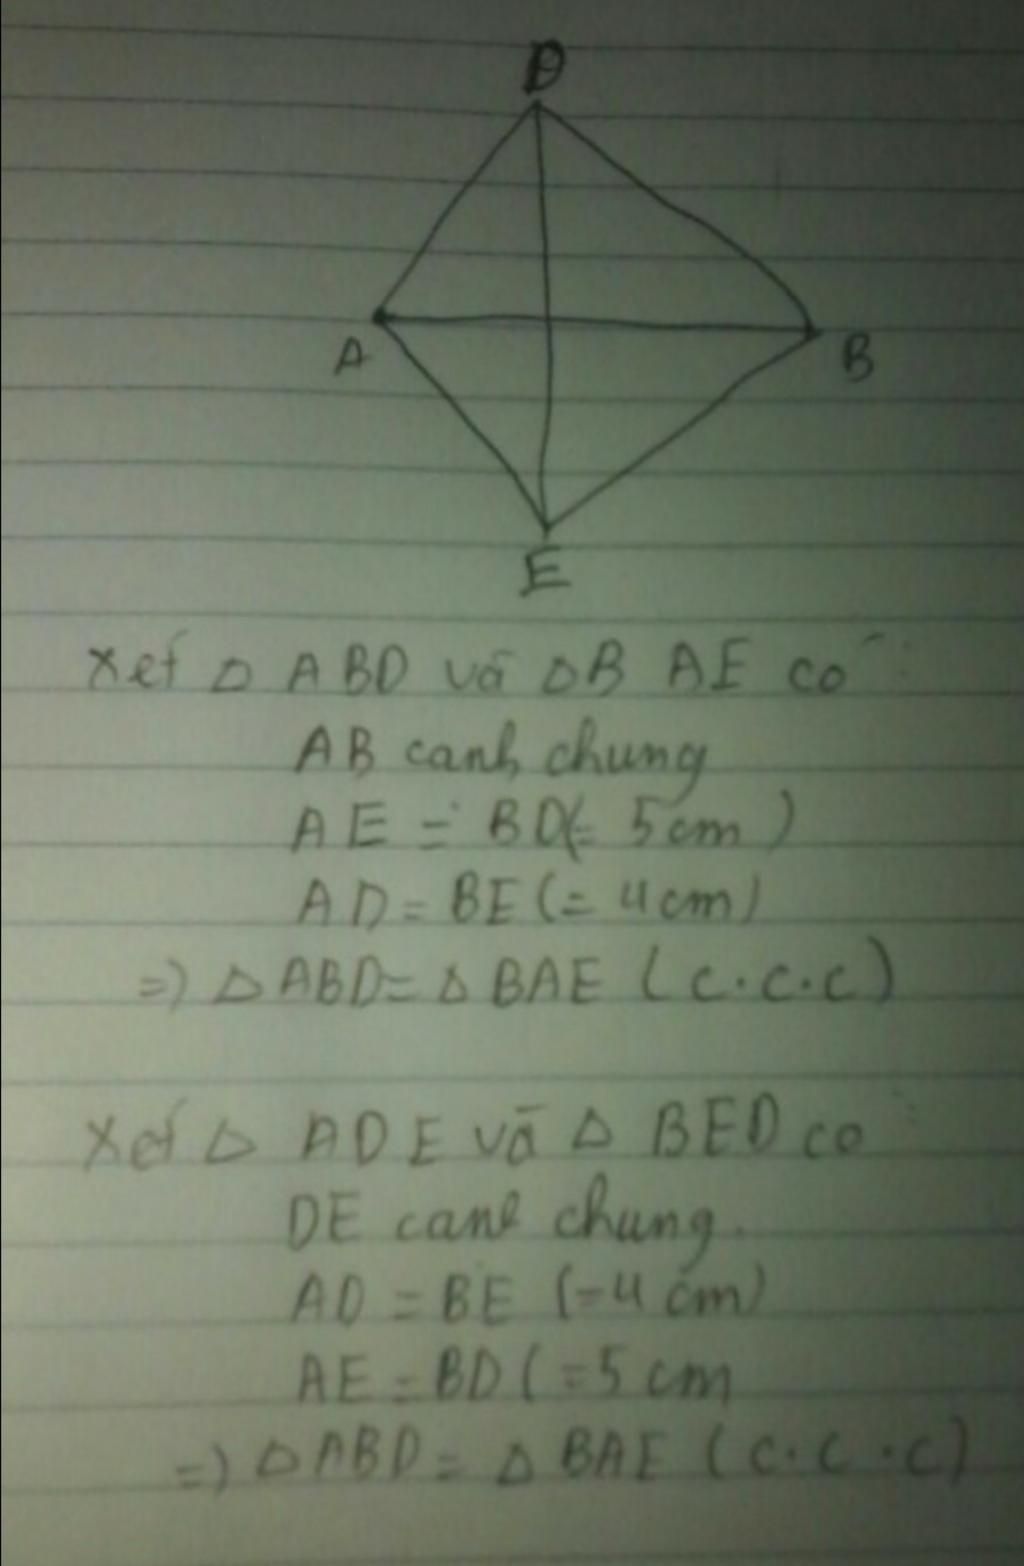 D
A
B
E
Xét △ ABD và △B AE có:
AB cạnh chung
AE = BD(= 5cm)
AD = BE (= 4cm)
=) △ABD = △BAE (c.c.c)
Xét △ ADE và △ BED có:
DE cạnh chung.
AD = BE (=4 cm)
AE = BD (=5 cm
=) △ABD = △BAE (c.c.c)